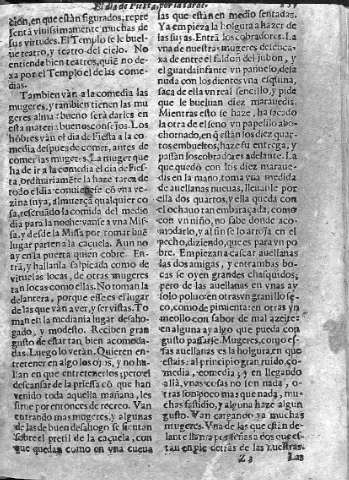 El dia de Fiesta, por la tarde.
cion, en que están figurados, repre
sentã viuissimamente muchas de
sus virtudes. El Templo se le buel-
ue teatro, y teatro del cielo. No
entiende bien teatros, quiẽ no de-
xa por el Templo el de las come-
dias.
Tambien vãn a la comedia las
mugeres, y tambien tienen las mu
geres alma: bueno serà darles en
esta materia buenos consejos. Los
hõbres vãn el dia de Fiesta a la co
media despues de comer, antes de
comer las mugeres. La muger que
ha de ir a la comedia el dia de Fies-
ta, ordinariamẽte la haze tarea de
todo el dia: conuienese cõ vna ve-
zina suya, almuerça qualquier co
sa, reseruãdo la comida del medio
dia para la noche: vanse a vna Mis-
sa, y desde la Missa por tomar buẽ
lugar parten a la caçuela. Aun no
ay en la puerta quien cobre. En-
trã, y hallanla salpicada como de
viruelas locas, de otras mugeres
tan locas como ellas. No toman la
delantera, porque esse es el lugar
de las que vàn a ver, y ser vistas. To
man en la medianìa lugar desaho-
gado, y modesto. Reciben gran
gusto de estar tan bien acomoda-
das. Luego lo veràn. Quieren en-
tretener en algo los ojos, y no ha-
llan en que entretenerlos: pero el
descansar de la priessa cõ que han
venido toda aquella mañana, les
sirue por entonces de recreo. Van
entrando mas mugeres, y algunas
de las de buen desahogo se sientan
sobre el pretil de la caçuela, con
que quedan como en vna cueua
las que estàn en medio sentadas.
Ya empieça la holgura a hazer de
las suyas. Entrã los cobradores. La
vna de nuestras mugeres desenca-
de entre el faldon del jubon, y
el guardainfante vn pañuelo, desa
nuda con los dientes vna esquina,
saca de ella vn real sencillo, y pide
que le bueluan diez marauedis.
Mientras esto se haze, ha sacado
la otra del seno vn papelillo abo-
chornado, en q̃ estàn los diez quar-
tos embueltos, haze su entrega, y
passan los cobradores adelante. La
que quedò con los diez maraue-
dis en la mano, toma vna medida
de auellanas nueuas, lleuanle por
ella dos quartos, y ella queda con
el ochauo tan embaraçada, como
con vn niño, no sabe donde aco-
modarlo, y al fin se lo arroja en el
pecho, diziendo, que es para vn po
bre. Empieçan a cascar auellanas
las dos amigas, y entrambas bo-
cas se oyen grandes chasquidos;
pero de las auellanas en vnas ay
solo poluo: en otras vn granillo se-
co, como de pimienta: en otras vn
meollo con sabor de mal azeite:
en alguna ay algo que pueda con
gusto passarse. Mugeres, como es-
sas auellanas es la holgura en que
estais: al principio gran ruìdo, co-
media, comedia, y en llegando
allà, vnas cosas no son nada, o
tras son poco mas que nada, mu-
chas fastidio, y alguna haze algun
gusto. Van cargando ya muchas
mugeres. Vna de las que estàn de-
lante llama por señas a dos que es-
tàn en pie detràs de las nuestras.
Z 3 Las